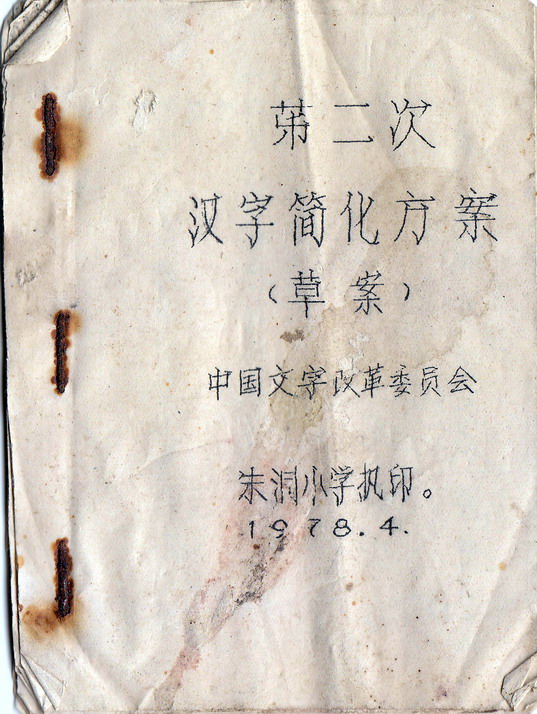 第二次
汉字简化方案
（草案）
中国文字改革委员会
朱洞小学执印。
1978.4.